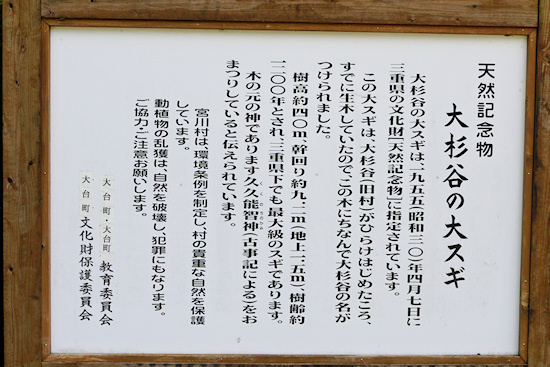 天然記念物
大杉谷の大スギ
大杉谷の大スギは、一九五五(昭和三〇)年四月七日に
三重県の文化財[天然記念物]に指定されています。
この大スギは、大杉谷[旧村]がひらけはじめたころ、
すでに生木していたので、この木にちなんで大杉谷の名が
つけられました。
樹高約四〇m、幹回り約九.二m(地上一.五m)、樹齢約
一二〇〇年とされ、三重県下でも最大級のスギであります。
木の元の神であります久久能智神(古事記による)をお
まつりしていると伝えられています。
宮川村は、環境条例を制定し、村の貴重な自然を保護
しています。
動植物の乱獲は、自然を破壊し、犯罪にもなります。
ご協力・ご注意お願いします。
大台町・大台町 教育委員会
大台町 文化財保護委員会